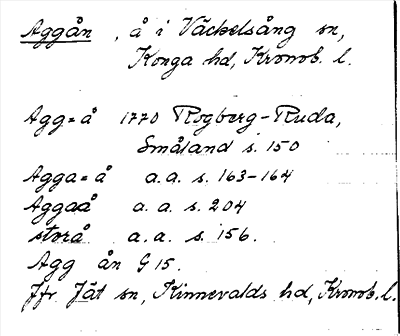 Aggån, å i Väckelsång sn,
Konga hd, Kronob. l.
Agg=å 1770 Rogberg-Ruda,
Småland s. 150
Agga=å a.a. s. 163-164
Aggaå a.a. s. 204
storå a.a. s. 156.
Agg ån G 15.
Jfr Jät sn, Kinnevalds hd, Kronob. l.